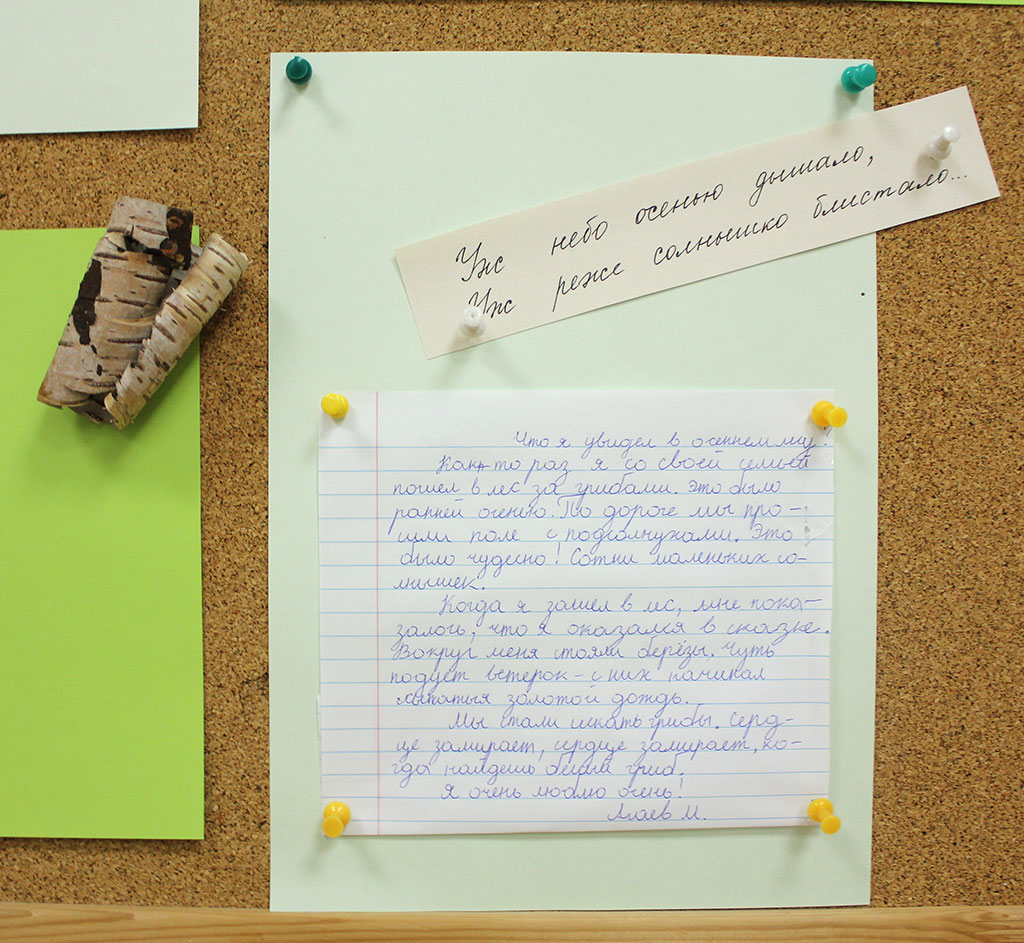 Уж небо осенью дышало,
Уж реже солнышко блистало...
Что я увидел в осеннем лесу!
Как-то раз я со своей семьёй
пошел в лес за грибами. Это было
ранней осенью. По дороге мы про-
шли поле с подсолнухами. Это
было чудесно! Сотни маленьких со-
лнышек.
Когда я зашел в лес, мне пока-
залось, что я оказался в сказке.
Вокруг меня стояли берёзы. Чуть
подует ветерок - с них начинал
сыпаться золотой дождь.
Мы стали искать грибы. Серд-
це замирает, сердце замирает, ко-
гда найдешь белый гриб.
Я очень люблю осень!
М.